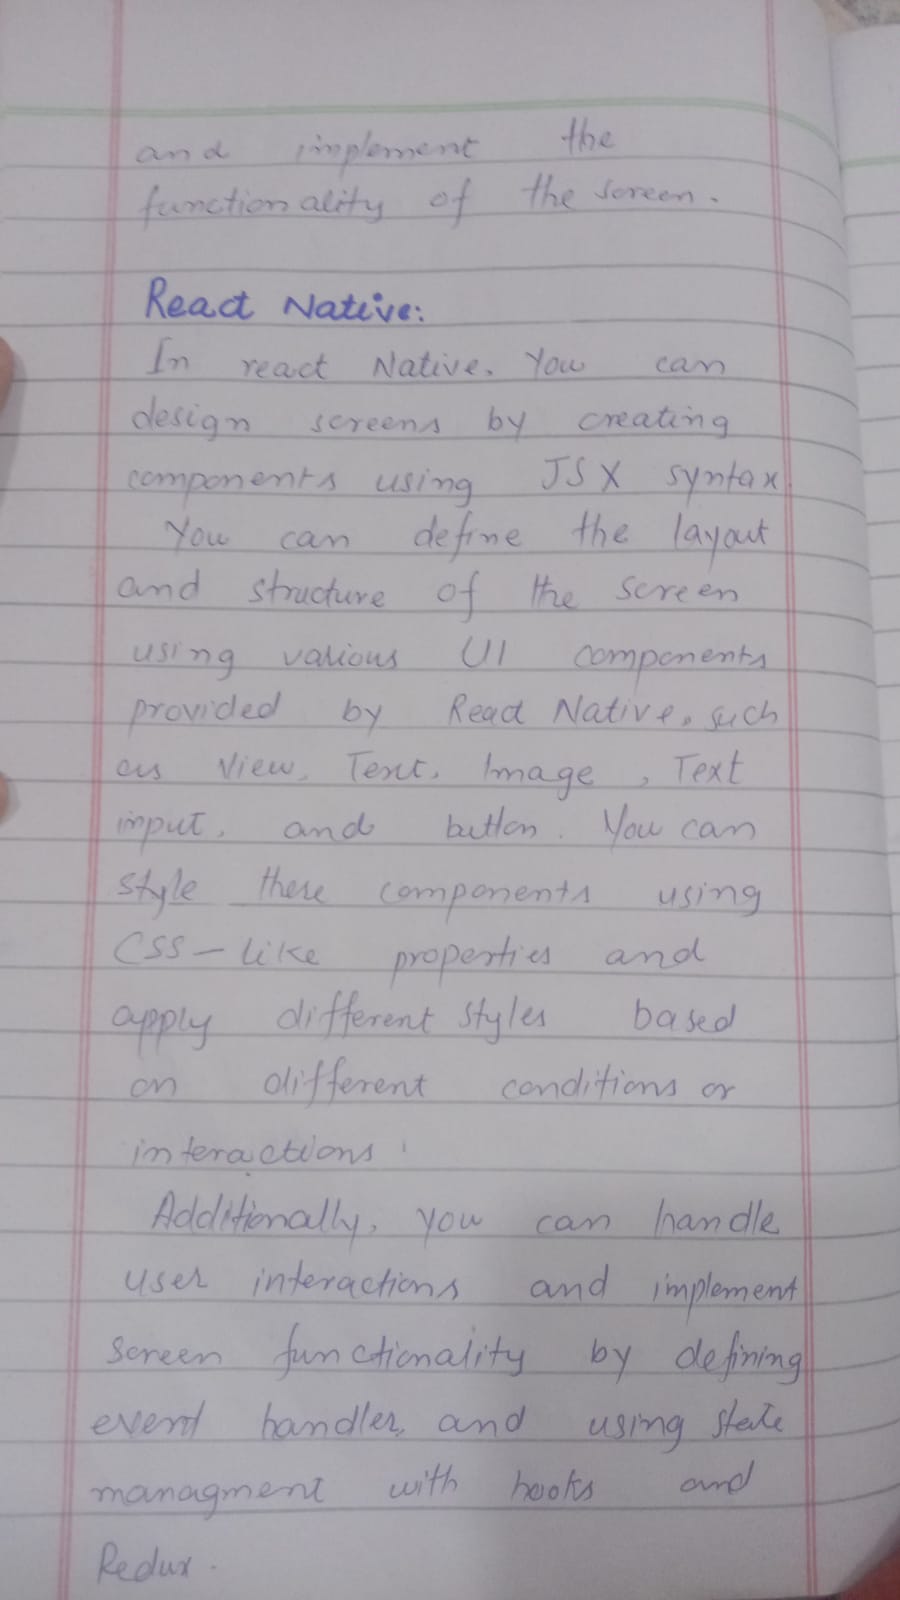 and implement the
functionality of the screen.
React Native:
In react Native. You can
design screens by creating
components using JSX syntax
You can define the layout
and structure of the screen
using various UI components
provided by React Native, such
as View, Text, Image, Text
input, and button. You can
style these components using
CSS-like properties and
apply different styles based
on different conditions or
interactions.
Additionally, you can handle
user interactions and implement
screen functionality by defining
event handler, and using state
managment with hooks and
Redux.